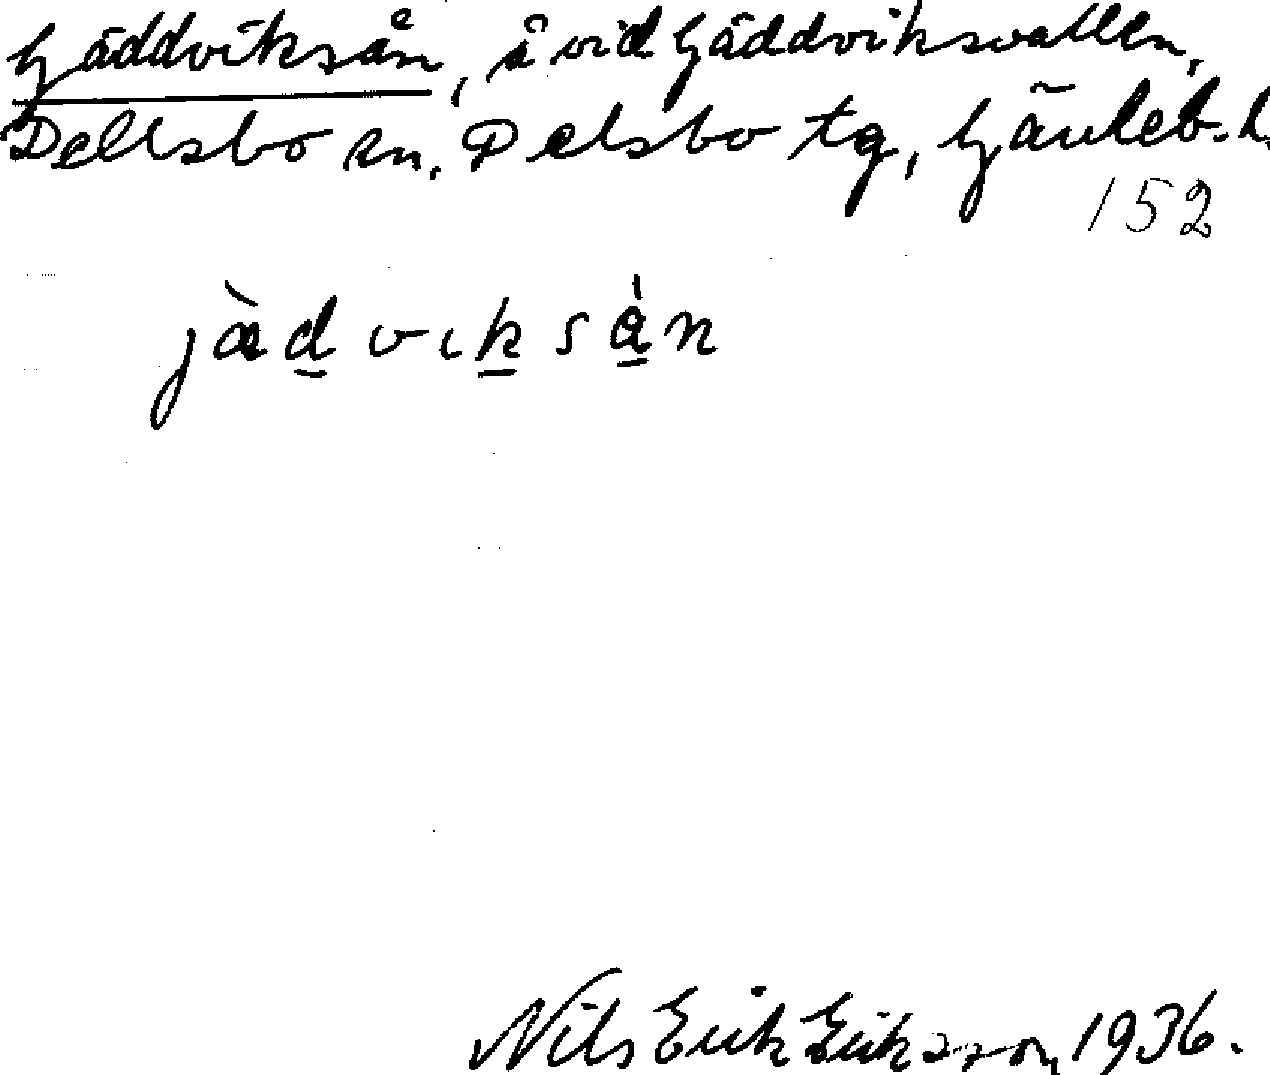 Gäddviksån, å vid Gäddviksvallen,
Dellsbo sn. Delsbo tg, Gävleb. l.
152
jàdviksån
Nils Erik Eriksson 1936.